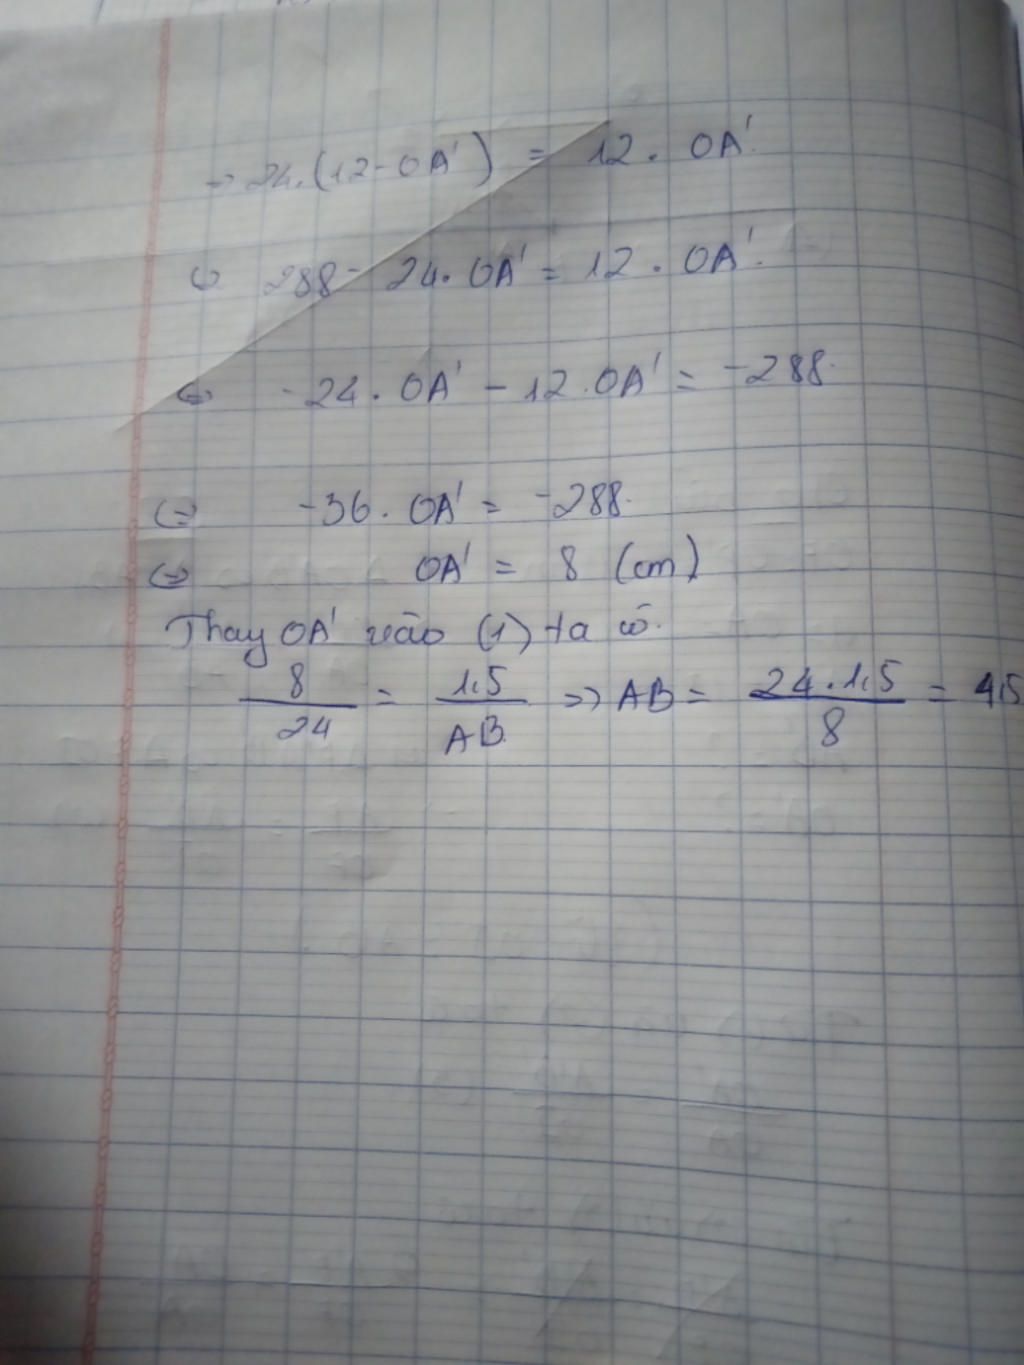 => 24.(12-OA') = 12. OA'.
<=> 288 - 24. OA' = 12. OA'.
<=> -24. OA' - 12. OA' = -288.
<=> -36. OA' = -288.
<=> OA' = 8 (cm)
Thay OA' vào (1) ta có.
8/24 = 1,5/AB => AB = 24.1,5/8 = 4,5